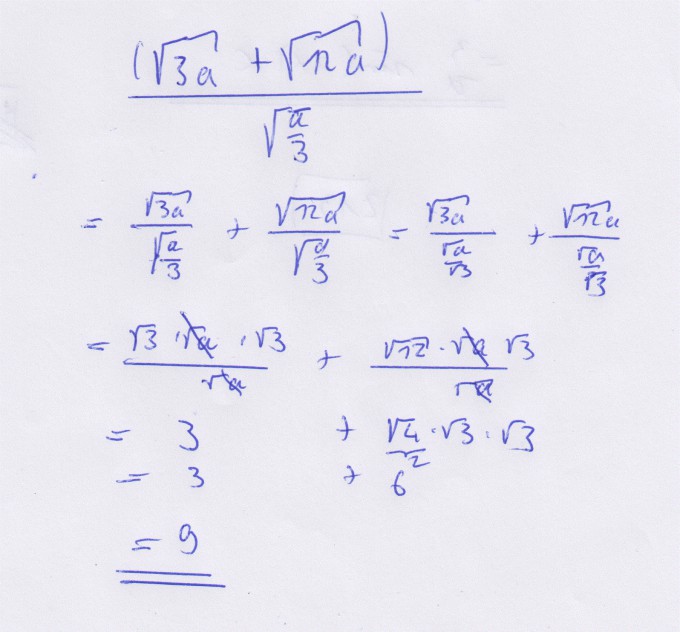 (√3a + √12a)
√a/3
= √3a/√a/3 + √12a/√a/3 = √3a/√a/√3 + √12a/√a/√3
= √3 · √a · √3/√a + √12 · √a √3/√a
= 3 + √4 · √3 · √3
2
= 3 + 6
= 9